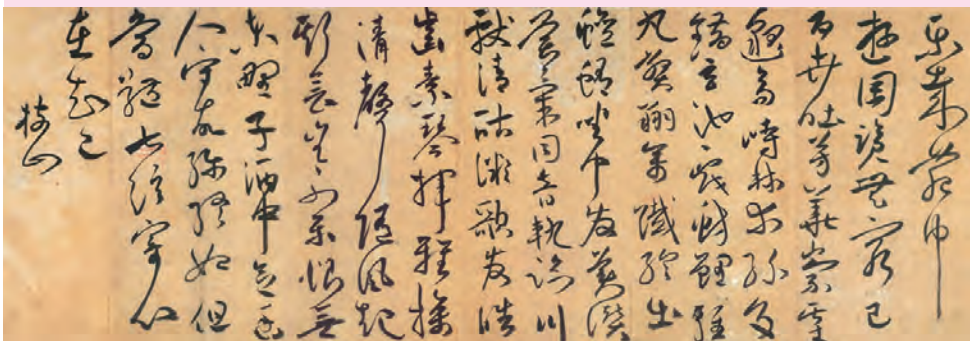 樂哉苑中
遊周覽無窮已
百卉吐芳華崇臺
邈高峙林木紛交
錯玄池戲魴鯉輕
丸斃翔禽纖綸出
鱣鮪坐中發美讚
異氣同音軌臨川
獻清酤微歌發皓
齒素琴揮雅操
清聲隨風起
斯會豈不樂恨無
東野子酒中念幽
人守故彌終始但
當體七弦寄心
在知己
枝山